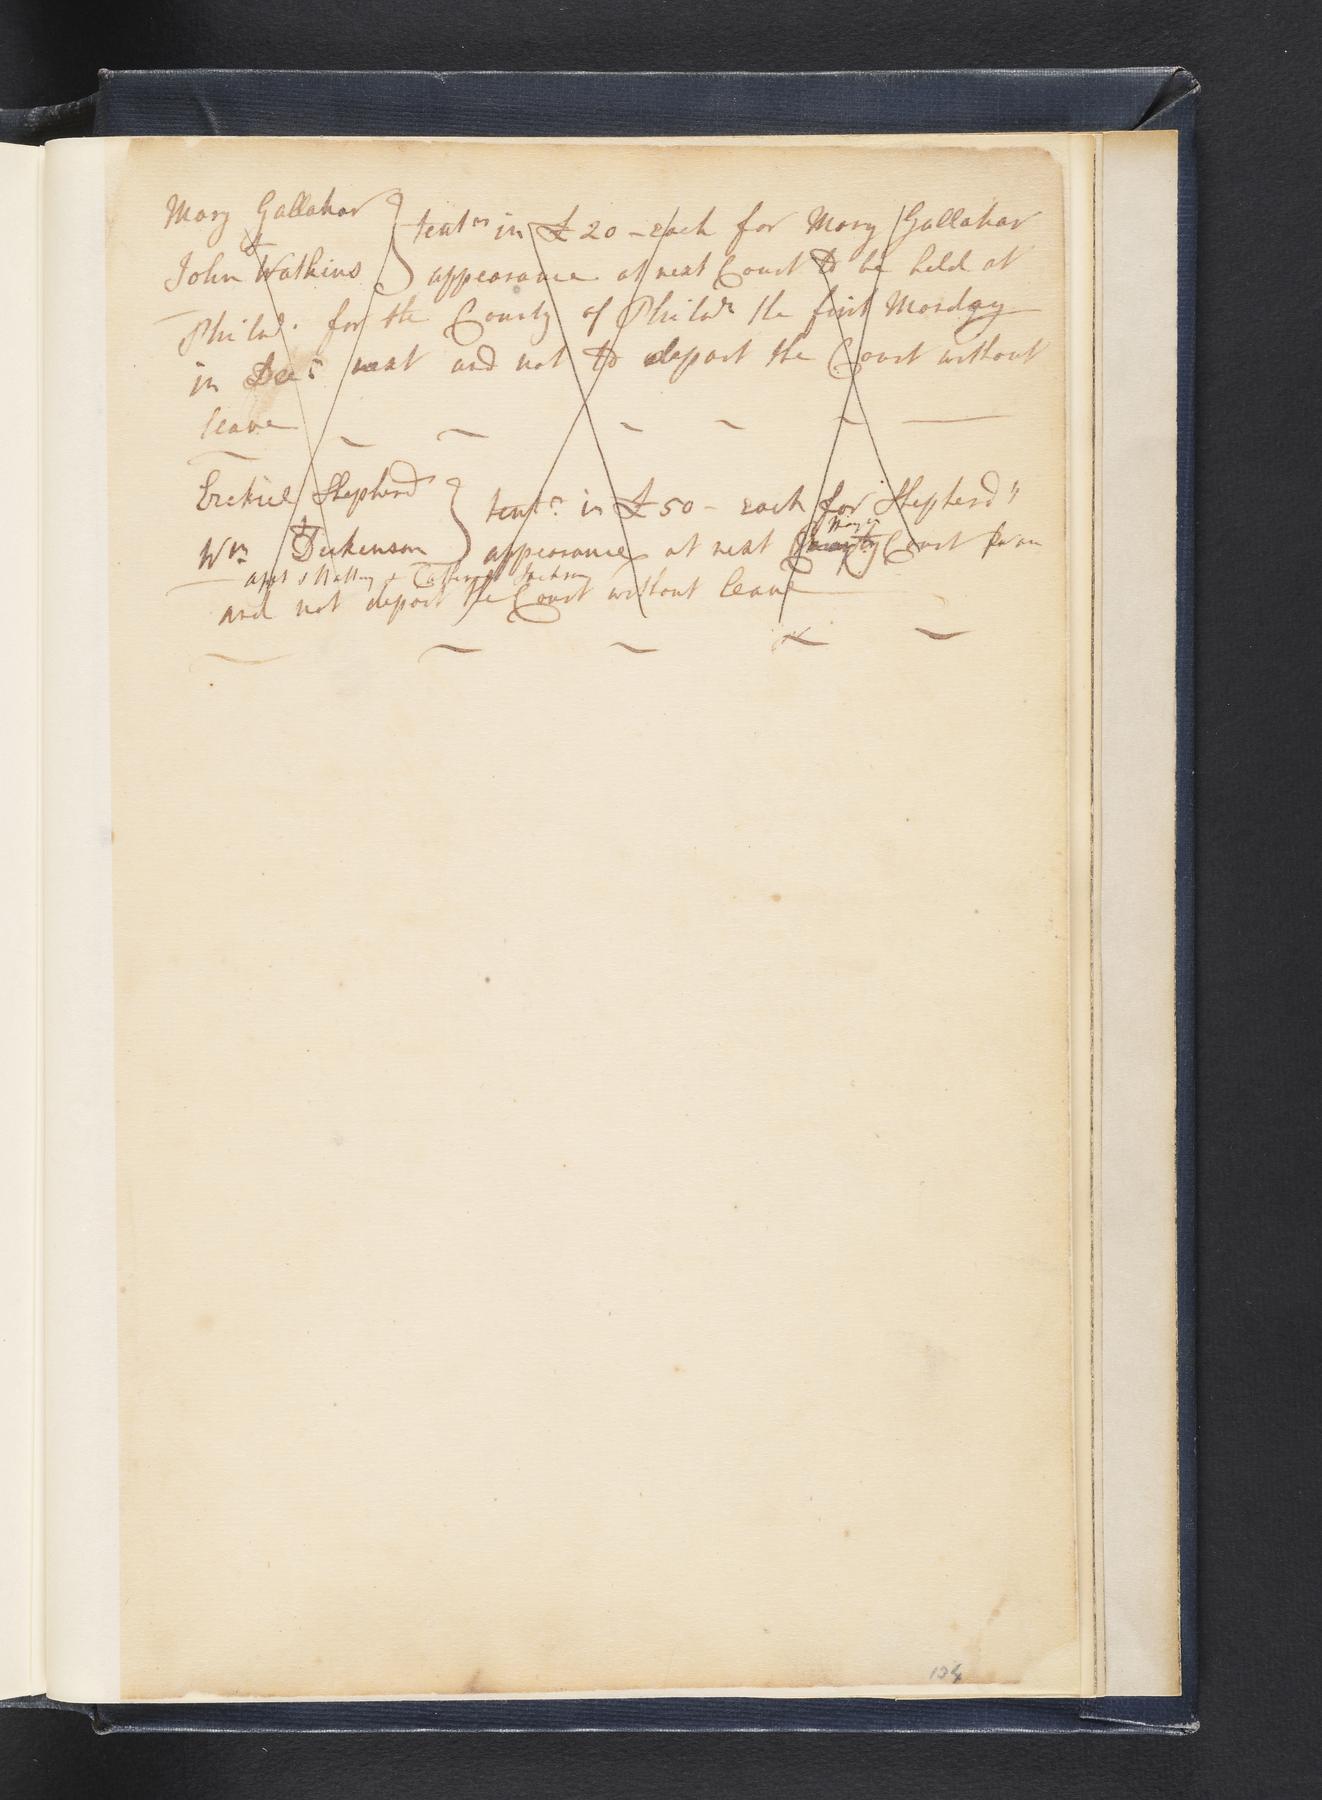 Mary Gallahar } tent.rs in £20 - each for Mary Gallahar
&
John Watkins } appearance at next Court to be held at
Philad.a for the County of Philad.a the first Monday
in Decr next and not to depart the Court without
leave
Ezekiel Shepherd } tent.rs in £50 - each for Shepherd's
&
Wm Dickenson } appearance at next County Court
Mayor
and not depart the Court without leave
124